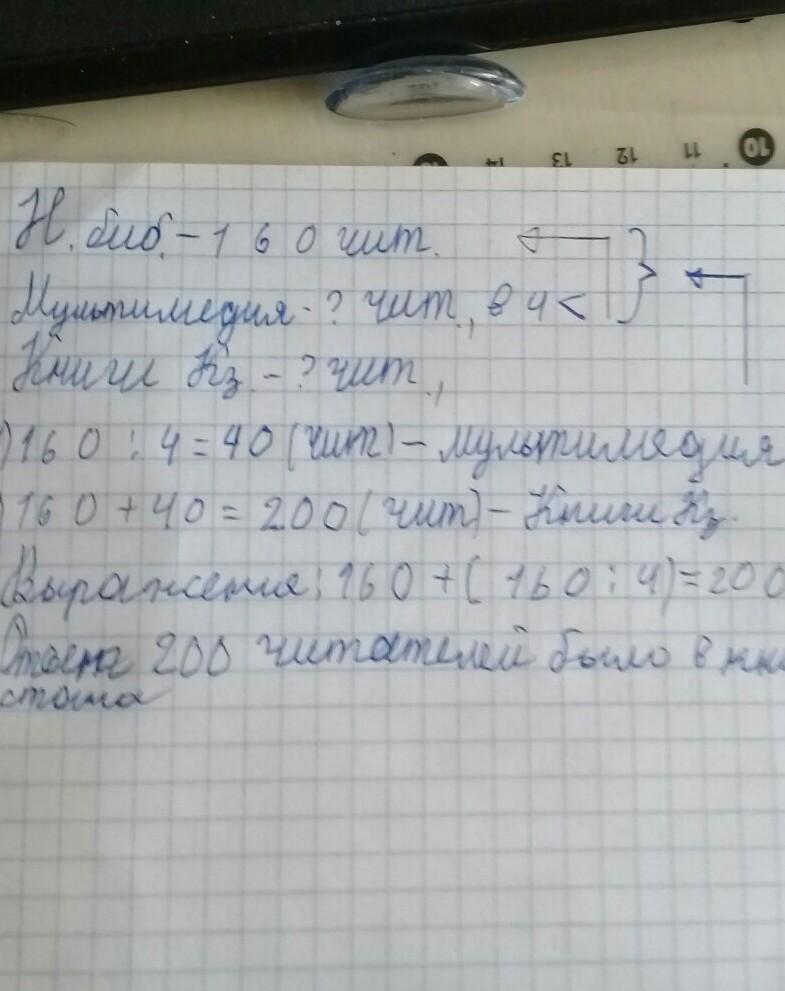 10 11 12 13 14
Н. биб. - 160 чит.
Мультимедия - ? чит., в 4 <
Книги Кз. - ? чит.,
) 160 : 4 = 40 (чит) - мультимедия
) 160 + 40 = 200 (чит) - Книги Кз.
Выражения: 160 + ( 160 : 4) = 200
200 читателей было в кни